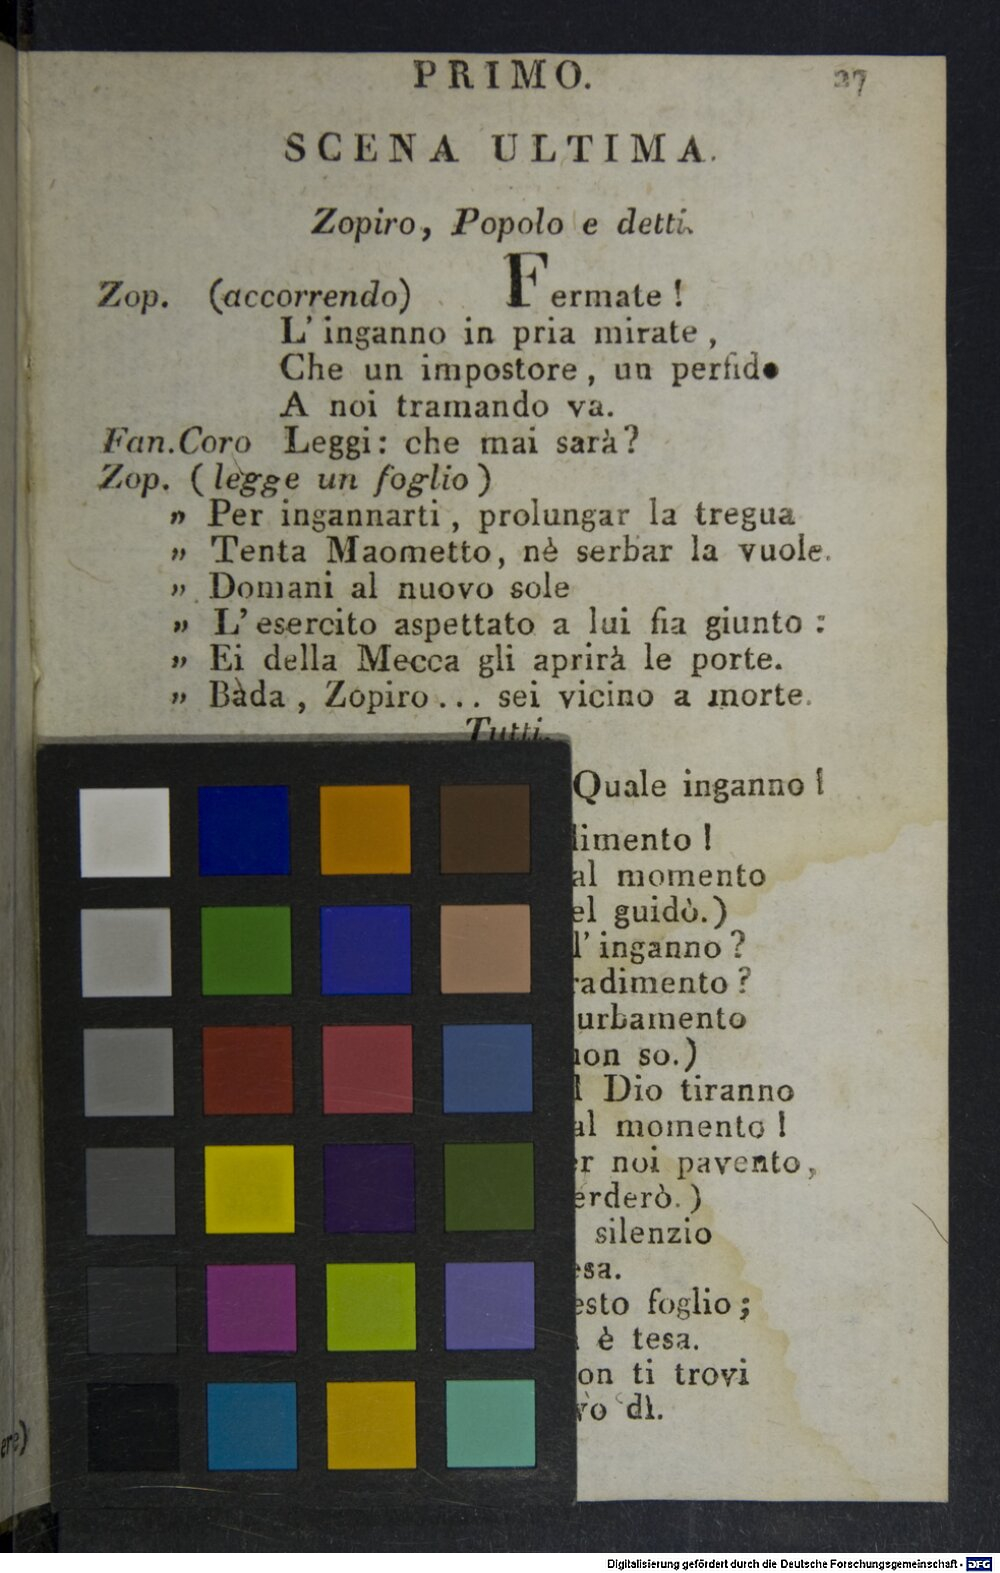 PRIMO. 27
SCENA ULTIMA.
Zopiro, Popolo e detti.
Zop. (accorrendo) Fermate !
L' inganno in pria mirate ,
Che un impostore , un perfido
A noi tramando va.
Fan.Coro Leggi: che mai sarà?
Zop. ( legge un foglio )
„ Per ingannarti , prolungar la tregua
„ Tenta Maometto, nè serbar la vuole.
„ Domani al nuovo sole
„ L' esercito aspettato a lui fia giunto :
„ Ei della Mecca gli aprirà le porte.
„ Bada , Zopiro ... sei vicino a morte.
Tutti.
Quale inganno !
dimento !
al momento
el guidò.)
l' inganno ?
radimento ?
urbamento
non so.)
l Dio tiranno
al momento !
er noi pavento,
erderò. )
silenzio
esa.
esto foglio ;
è tesa.
on ti trovi
vo dì.
ere)
Digitalisierung gefördert durch die Deutsche Forschungsgemeinschaft - DFG